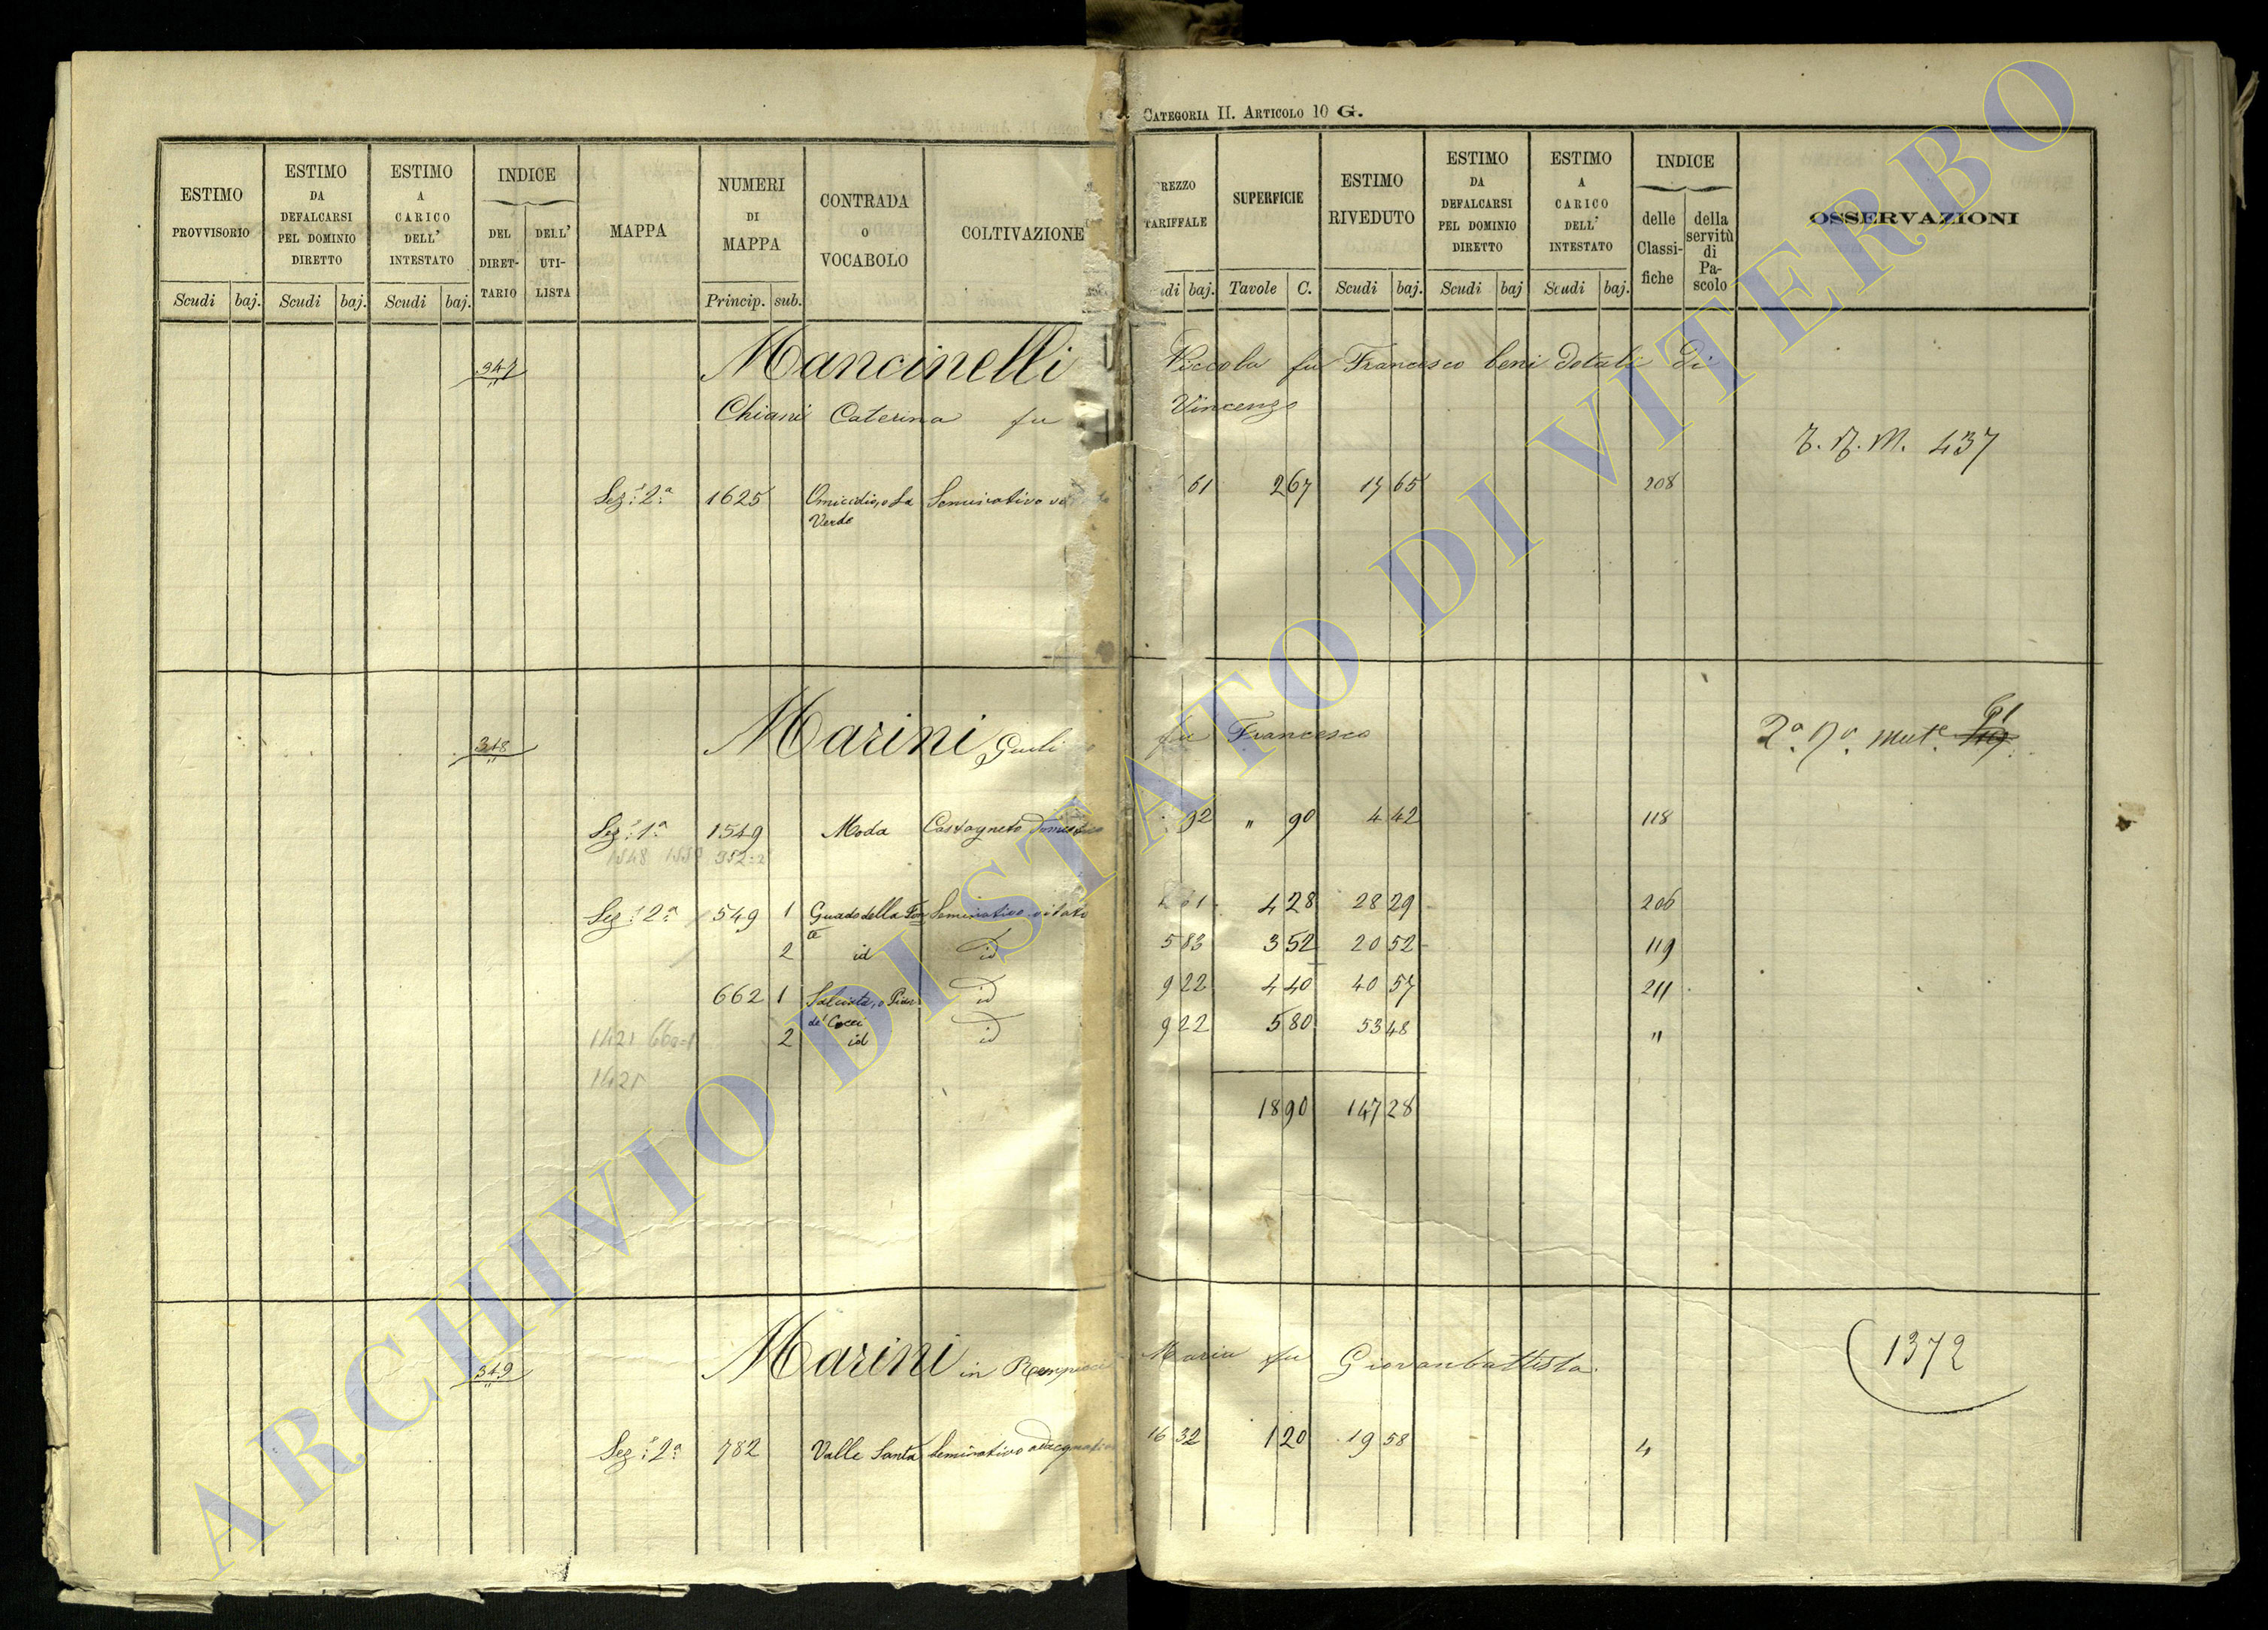 CATEGORIA II. ARTICOLO 10 G.
ESTIMO PROVVISORIO
ESTIMO DA DEFALCARSI PEL DOMINIO DIRETTO
ESTIMO A CARICO DELL' INTESTATO
INDICE
DEL DIRETTARIO
DELL' UTILISTA
MAPPA
NUMERI DI MAPPA
CONTRADA O VOCABOLO
COLTIVAZIONE
REZZO TARIFFALE
SUPERFICIE
ESTIMO RIVEDUTO
ESTIMO DA DEFALCARSI PEL DOMINIO DIRETTO
ESTIMO A CARICO DELL' INTESTATO
INDICE
delle Classifiche
della servitù di Pascolo
OSSERVAZIONI
Scudi baj. Scudi baj. Scudi baj. Princip. sub.
di baj. Tavole C. Scudi baj. Scudi baj Scudi baj.
347 Mancinelli fu Francesco beni dotali di
Chiani Caterina fu Vincenzo
437
Sez: 2a 1625 Omicidio, o La Seminativo 61 2 67 17 65 208
Verde
348 Marini fu Francesco
2a mut.
Sez: 1a 1549 Moda Castagneto domestico 92 " 90 4 42 118
1548
Sez: 2a 549 1 Guado della Fon Seminativo vitato 61 4 28 28 29 206
te
2 id id 5 83 3 52 20 52 119
662 1 id 9 22 4 40 40 57 211
de' Cocci
2 id id 9 22 5 80 53 48 "
1421
1421
18 90 147 28
349 Marini in Maria fu Giovanbattista
1372
Sez: 2a 782 Valle Santa Seminativo adacquativo 16 32 1 20 19 58 4
ARCHIVIO DI STATO DI VITERBO